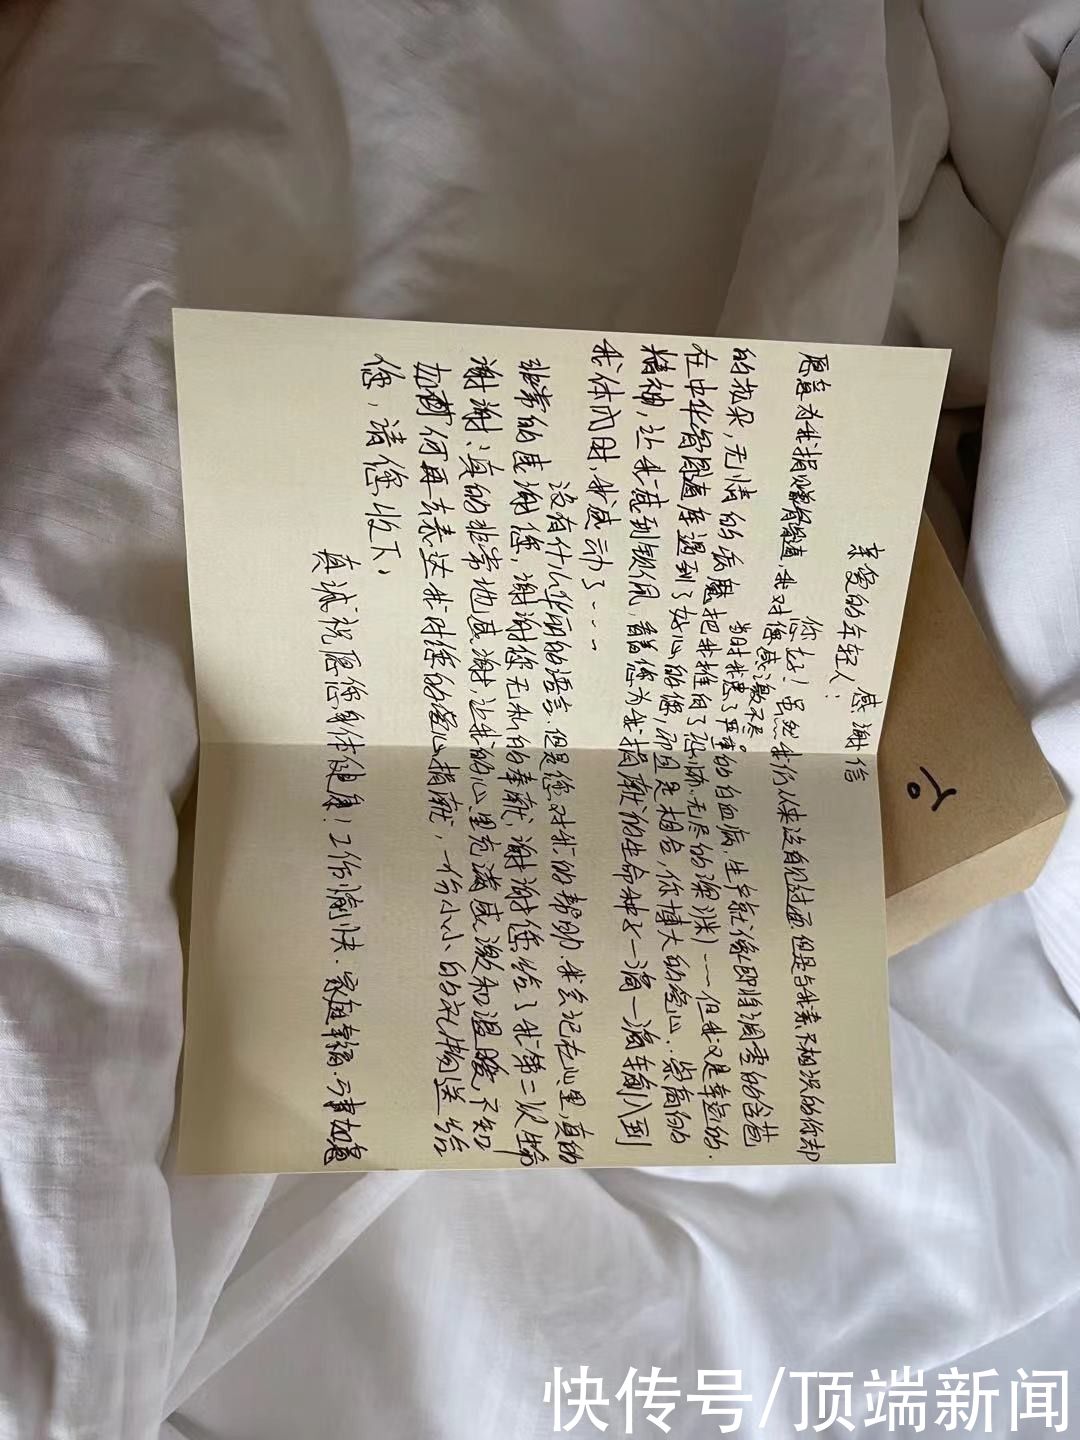 感谢信
亲爱的年轻人:
你好!虽然我们从来没有见过面,但是与我素不相识的你却
愿意为我捐赠骨髓,我对您感激不尽。
当时我患了严重的白血病,生产就像即将凋零的含苞
的花朵,无情的病魔把我推向了恐怖无尽的深渊)----但我又是幸运的.
在中华骨髓库遇到了好心的您,而且是相合,你博大的爱心..崇高的
精神,让我感到钦佩,看着您为我捐献的生命种子一滴一滴输入到
我体内时,我感动了----
没有什么华丽的语言.但是您对我的帮助.我会记在心里,真的
非常的感谢您,谢谢您无私的奉献,谢谢您给了我第二次生命
谢谢!真的非常地感谢,让我的心里充满感激和温暖,不知
如何再去表达我对您的爱心捐献,一份小小的礼物送给
您,请您收下,
真诚祝愿您身体健康!工作愉快.家庭幸福.万事如意
快传号/顶端新闻